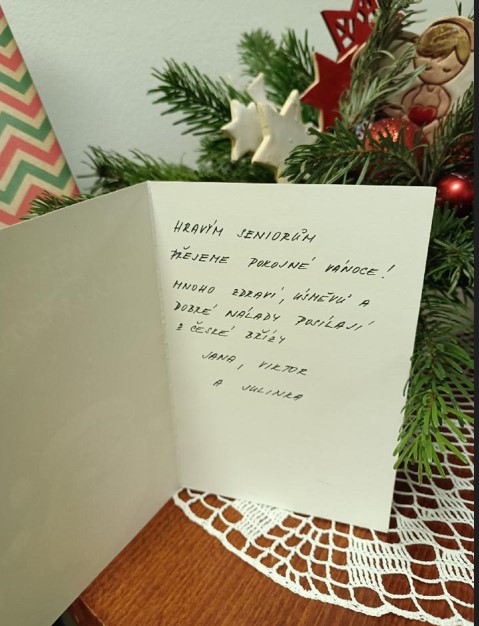 HRAVÝM SENIORŮM
PŘEJEME POKOJNÉ VÁNOCE!
MNOHO ZDRAVÍ, ÚSMĚVŮ A
DOBRÉ NÁLADY POSÍLAJÍ
Z ČESKÉ BŘÍZY
JANA, VIKTOR
A JULINKA